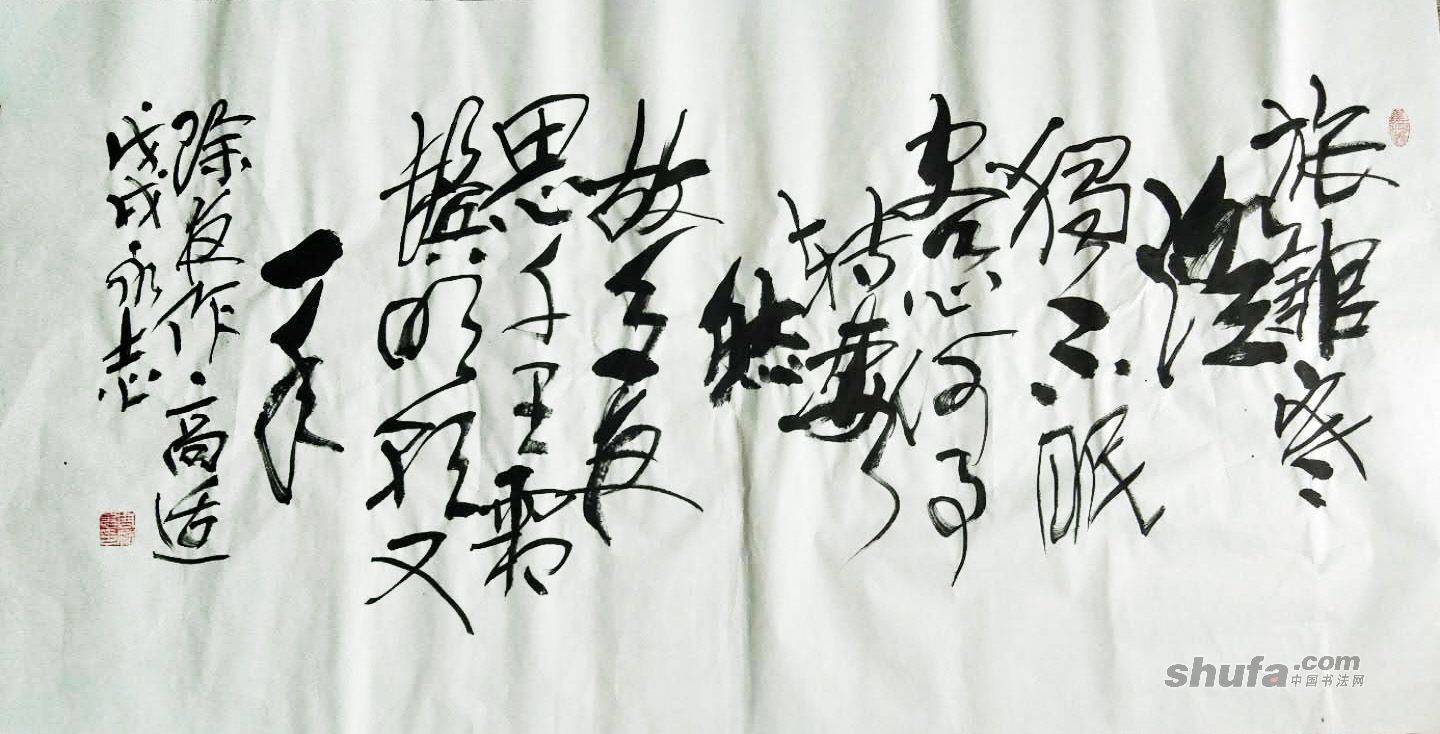 旅館寒
燈
獨不眠
客心何事
轉凄
然
故乡今夜
思千里霜
鬢明朝又
一年
除夜作高适
戊戌永志
shufa.com
中国书法网